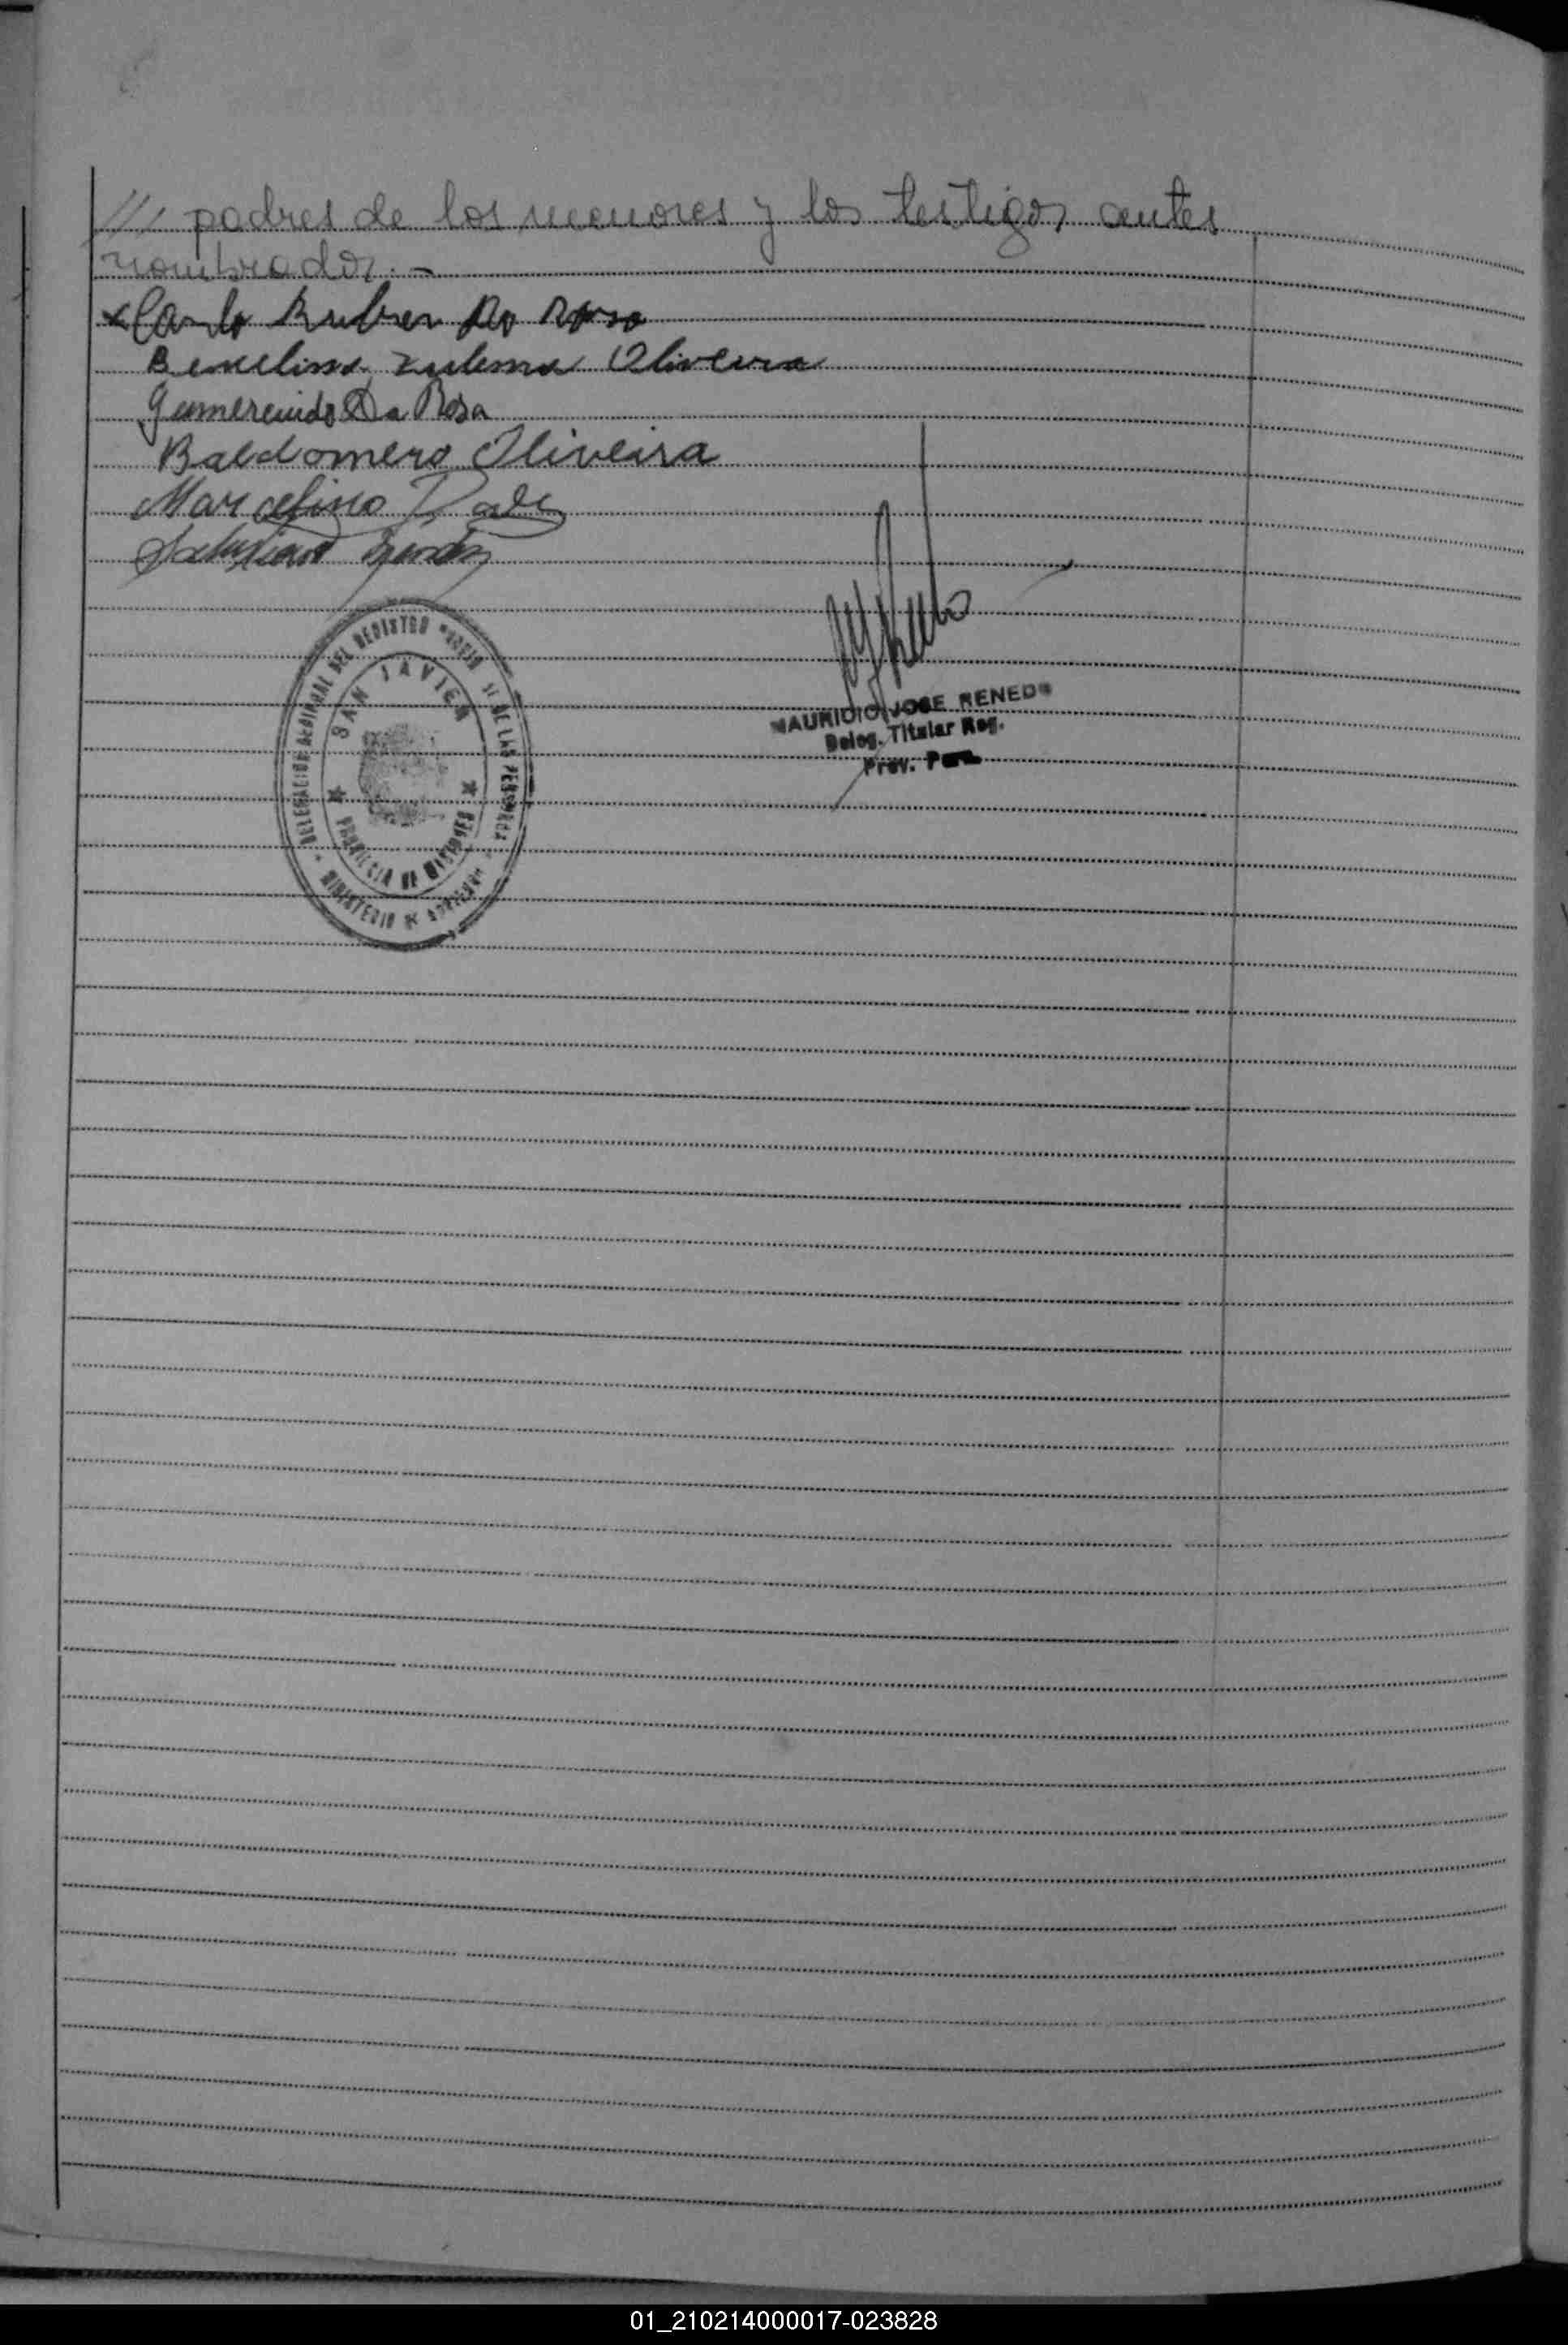 /// padres de los menores y los testigos antes
nombrados.-
x Carlo Ruben Da Rosa
Zulema Oliveira
Gumercindo Da Rosa
Baldomero Oliveira
Marcelino
DELEGACION REGIONAL DEL REGISTRO DE LAS PERSONAS
SAN JAVIER
PROVINCIA DE MISIONES
MINISTERIO DE
MAURICIO JOSE RENEDO
Deleg. Titular Reg.
Prov. Pers.
01_210214000017-023828